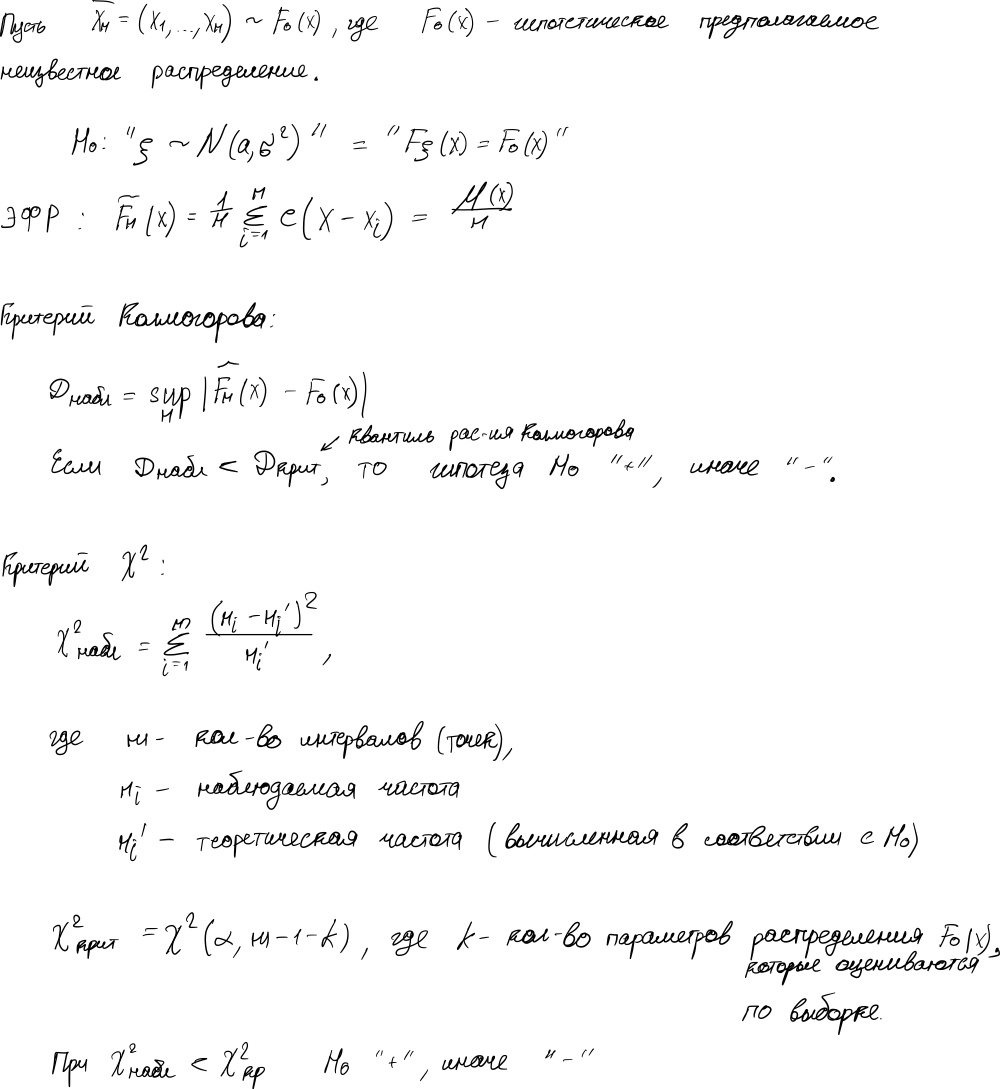 Пусть X̄н = (X1, ..., Xн) ~ F0(x), где F0(x) - гипотетическое предполагаемое
неизвестное распределение.
H0: "ξ ~ N(a, σ²)" = "Fξ(x) = F0(x)"
ЭФР: F̃н(x) = 1/н Σ_{i=1}^{н} e(x - xi) = μ(x)/н
Критерий Колмогорова:
Dнабл = sup_н |F̂н(x) - F0(x)|
квантиль рас-ия Колмогорова
Если Dнабл < Dкрит, то гипотеза H0 "+", иначе "-".
Критерий χ²:
χ²набл = Σ_{i=1}^{m} (нi - нi')²/нi',
где m - кол-во интервалов (точек),
нi - наблюдаемая частота
нi' - теоретическая частота (вычисленная в соответствии с H0)
χ²крит = χ²(α, m-1-k), где k - кол-во параметров распределения F0(x),
которые оцениваются
по выборке.
При χ²набл < χ²кр H0 "+", иначе "-"